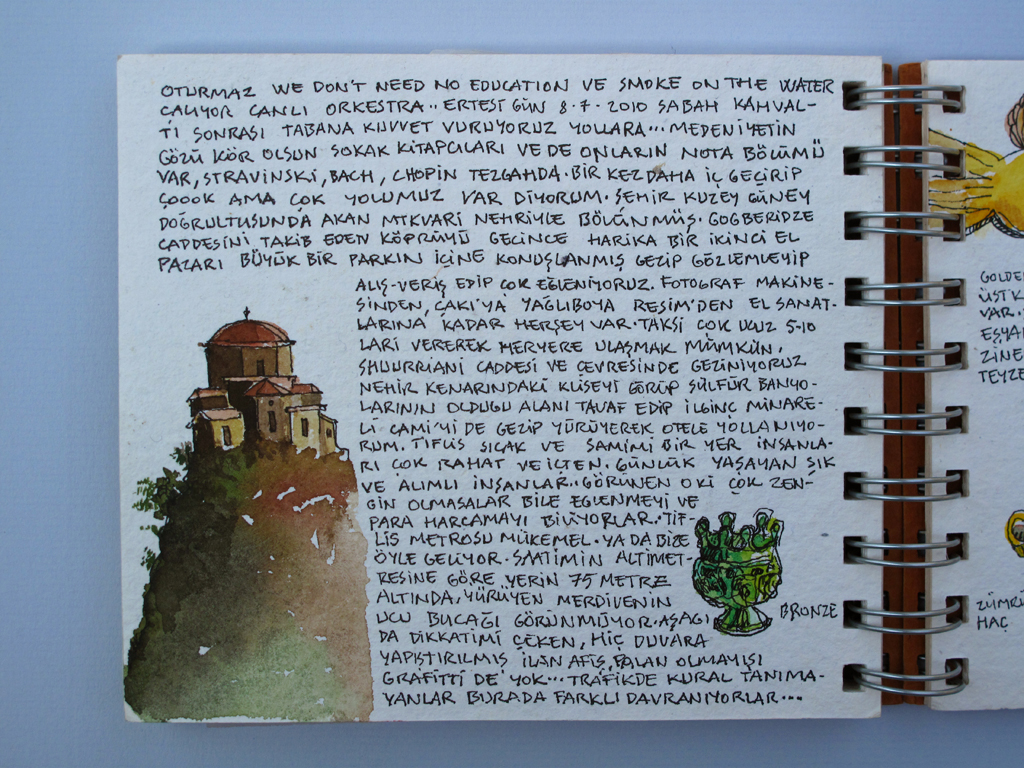 OTURMAZ WE DON'T NEED NO EDUCATION VE SMOKE ON THE WATER
ÇALIYOR CANLI ORKESTRA.. ERTESİ GÜN 8.7.2010 SABAH KAHVAL-
TI SONRASI TABANA KUVVET VURUYORUZ YOLLARA... MEDENİYETİN
GÖZÜ KÖR OLSUN SOKAK KİTAPÇILARI VE DE ONLARIN NOTA BÖLÜMÜ
VAR, STRAVİNSKİ, BACH, CHOPIN TEZGAHDA. BİR KEZ DAHA İÇ GEÇİRİP
ÇOOOK AMA ÇOK YOLUMUZ VAR DİYORUM. ŞEHİR KUZEY GÜNEY
DOĞRULTUSUNDA AKAN MTKVARİ NEHRİYLE BÖLÜNMÜŞ. GOGBERİDZE
CADDESİNİ TAKİB EDEN KÖPRÜYÜ GEÇİNCE HARİKA BİR İKİNCİ EL
PAZARI BÜYÜK BİR PARKIN İÇİNE KONUŞLANMIŞ GEZİP GÖZLEMLEYİP
ALIŞ-VERİŞ EDİP ÇOK EĞLENİYORUZ. FOTOGRAF MAKİNE-
SİNDEN, ÇAKI'YA YAĞLIBOYA RESİM'DEN EL SANAT-
LARINA KADAR HERŞEY VAR. TAKSİ ÇOK UCUZ 5-10
LARİ VEREREK HERYERE ULAŞMAK MÜMKÜN.
SHUURRIANI CADDESİ VE ÇEVRESİNDE GEZİNİYORUZ
NEHİR KENARINDAKİ KLİSEYİ GÖRÜP SÜLFÜR BANYO-
LARININ OLDUGU ALANI TAVAF EDİP İLGİNÇ MİNARE-
Lİ CAMİ'Yİ DE GEZİP YÜRÜYEREK OTELE YOLLANIYO-
RUM. TİFLİS SICAK VE SAMİMİ BİR YER İNSANLA-
RI ÇOK RAHAT VE İÇTEN. GÜNLÜK YAŞAYAN ŞIK
VE ALIMLI İNSANLAR.. GÖRÜNEN O Kİ ÇOK ZEN-
GİN OLMASALAR BİLE EGLENMEYİ VE
PARA HARCAMAYI BİLİYORLAR. TİF-
LİS METROSU MÜKEMEL. YA DA BİZE
ÖYLE GELİYOR. SAATİMİN ALTİMET-
RESİNE GÖRE YERİN 75 METRE
ALTINDA, YÜRÜYEN MERDİVENİN
UCU BUCAĞI GÖRÜNMÜYOR. AŞAGI
DA DİKKATİMİ ÇEKEN, HİÇ DUVARA
YAPIŞTIRILMIŞ İLAN AFİŞ, FALAN OLMAYIŞI
GRAFİTTİ DE YOK... TRAFİKDE KURAL TANIMA-
YANLAR BURADA FARKLI DAVRANIYORLAR...
BRONZE
GOLDE
ÜST K
VAR.
EŞYA
ZİNE
TEYZE
ZÜMRÜ
HAÇ